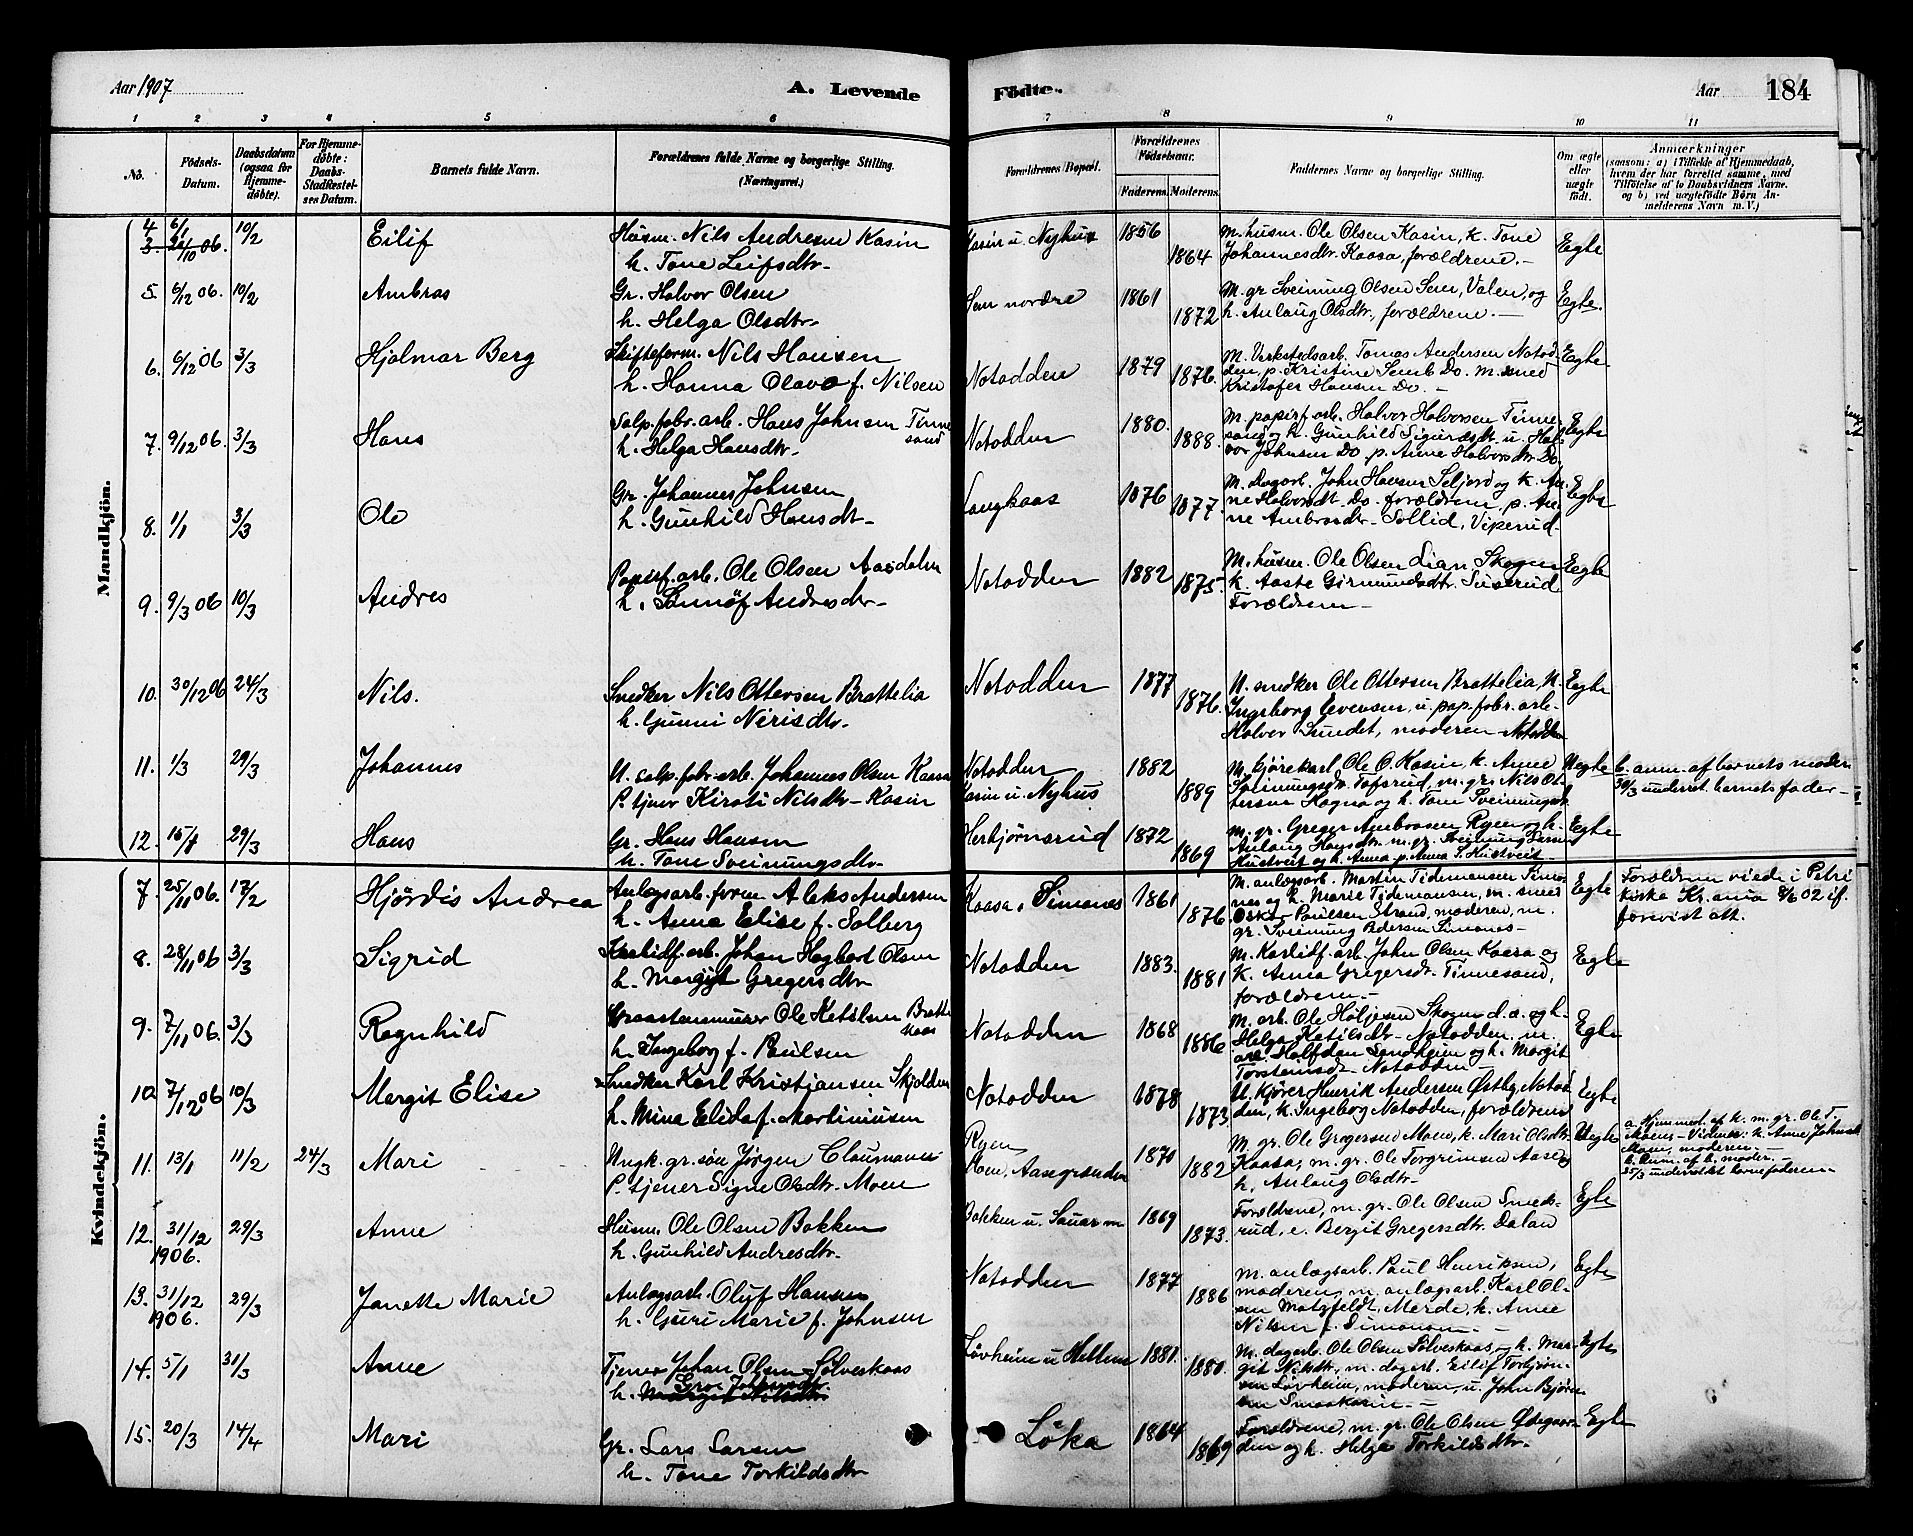 Aar 1907
A. Levende
Födte.
Aar
184
1 2 3 4 5 6 7 8 9 10 11
No.
Födsels-Datum.
Daabsdatum (ogsaa for Hjemme-döbte).
For Hjemme-döbte: Daabs-Stadfæstel-ses Datum.
Barnets fulde Navn.
Forældrenes fulde Navne og borgerlige Stilling.
(Næringsvei.)
Forældrenes Bopæl.
Forældrenes Födselsaar.
Faderens. Moderens.
Faddernes Navne og borgerlige Stilling.
Om ægte eller uægte født.
Anmærkninger
(saasom: a) i Tilfælde af Hjemmedaab,
hvem der har forrettet samme, med
Tilföielse af to Daabsvidners Navne.
og b) ved uægtefödte Börn An-
melderens Navn m. V.)
Mandkjön.
4 6/1 10/2 Eilif Husm. Nils Andresen Kasin
h. Tone Leifsdtr.
Kasin u. Nyhus 1856 1864
M. husm. Ole Olsen Kasin, k. Tone
Johannesdtr. Kaasa, forældrene.
Egte
5. 6/12 06. 10/2 Ambros Gr. Halvor Olsen
h. Helga Olsdtr.
Sem nordre 1861 1872
M. gr. Sveinung Olsen Sem, Valen, og
h. Anlaug Olsdtr., forældrene.
Egte.
6. 6/12 06 3/3 Hjalmar Berg Skifteform. Nils Hansen
h. Hanna Olava f. Nilsen
Notodden 1879 1876.
M. Verkstedsarb. Tomas Andersen Notod-
den, p. Kristine Semb Do. m. smed
Kristofer Hansen Do.
Egte
7. 9/12 06. 3/3 Hans Salp.fabr.arb. Hans Johnsen Tinnesand
h. Helga Hansdtr.
Notodden 1880. 1888.
M. papirf.arb. Halvor Halvorsen Tinne-
sand og h. Gunhild Sigurdsdt. u. Hal-
vor Johnsen Do. p. Anne Halvorsdtr. Do.
Egte
8. 1/1 3/3 Ole Gr. Johannes Johnsen
h. Gunhild Hansdt.
Langkaas 1876 1877.
M. Dagarb. John Hansen Seljord og k. An-
ne Halvorsdt. Do. forældrene, p. An-
ne Ambrosdtr. Sollid, Viperud.
Egte
9. 9/3 06 10/3 Andres Papirf.arb. Ole Olsen Aasdalen
h. Sennøf Andresdtr.
Notodden 1882 1875.
M. husm. Ole Olsen Lian, Skogen
k. Aaste Girmundsdt. Suserud
Forældrene
Egte
10. 30/12 06 24/3 Nils. Snedker Nils Ottersen Brattelia
h. Gunni Nirisdtr.
Notodden 1877 1876.
U. snedker Ole Ottersen Brattelia, k.
Ingeborg Evensen, u. pap.fabr.arb.
Halvor Sundet, moderen Notodden
Egte
11. 1/3 29/3 Johannes U. salp.fabr.arb. Johannes Olsen Kaasa
P. tjener Kirsti Nilsdtr. Kasin
Notodden
Kasin u. Nyhus 1882 1889
M. kjørekarl Ole O. Kasin, k. Anne
Sveinungsdtr. Tofsrud, m. gr. Nils Ot-
tersen Hagna og h. Tone Sveinungsdt.
Uegte b. anm. af barnets moder
30/3 underret. barnets fader
12. 29/3 Hans Gr. Hans Hansen
h. Tone Sveinungsdtr.
Herbjørnsrud 1872 1869
M. gr. Greger Ambrosen Ryen og h.
Anlaug Hansdtr. m. gr. Sveinung Larsen
Hustveit og h. Anna p. Anna S. Hustveit
Egte
Kvindekjön.
7. 25/11 06. 17/2 Hjørdis Andrea Anlægsarb.form. Aleks Andersen
h. Anna Elise f. Solberg
Kaasa, Simones 1861 1876.
M. anlægsarb. Martin Tidemansen Simo-
nes og h. Marie Tidemansen, m. smed
Oskar Paulsen Strand, moderen, m.
gr. Sveinung Pedersen Simones
Egte Forældrene viede i Petri
kirke Kr.ania 8/6 02 if.
forevist att.
8. 28/11 06 3/3 Sigrid Karbidf.arb. Johan Hagbart Olsen
h. Margit Gregersdtr
Notodden 1883. 1881
M. Karbidf.arb. John Olsen Kaasa og
k. Anna Gregersdt. Tinnesand,
forældrene.
Egte
9. 7/11 06. 3/3 Ragnhild Graastensmurer Ole Ketilsen Brattekaas
h. Ingeborg f. Paulsen
Notodden 1868 1886
M. arb. Ole Høljesen Skogen d.a. og h.
Helga Ketilsdt. Notodden, m.
arb. Halfdan Sandheim og h. Margit
Torsteinsdt. Notodden
Egte
10. 7/12 06 10/3 Margit Elise Snedker Karl Kristjansen Skjolden
h. Mina Elida f. Martiniusen
Notodden 1878 1873.
U. Kjører Henrik Andersen Østby, Notod-
den, k. Ingeborg Notodden, forældrene
Egte
11. 13/1 11/2 24/3 Mari Ungk. gr.søn Jørgen Claumann
P. tjener Signe Olsdtr. Moen
Ryen
Moen, Aasegrænden 1870 1882
M. gr. Ole Gregersen Moen, k. Mari Olsdtr.
Kaasa, m. gr. Ole Torgrimsen Aase og
h. Anlaug Olsdtr.
Uegte a. Hjemmed. af k. m. gr. Ole T.
Moens Vidner: k. Anne Johnsdt.
Moen, moderen.
b. Anm. af b. moder.
25/3 underrettet barnefaderen
12. 31/12 1906. 29/3 Anne Husm. Ole Olsen Bakken
h. Gunhild Andresdtr.
Bakken u. Sauar m 1869 1873.
Forældrene, m. gr. Ole Olsen Smeds-
rud, e. Bergit Gregersdtr. Dalan
Egte
13. 31/12 1906. 29/3 Janette Marie Anlægsarb. Oluf Hansen
h. Guri Marie f. Johnsen
Notodden 1877 1886
M. anlægsarb. Paul Henriksen,
moderen, m. anlægsarb. Karl Ol-
sen Matzfeldt, Merde, k. Anne
Nilsen f. Simonsen
Egte
14. 5/1 31/3 Anne Tjener Johan Olsen Sølveskaas
h. Gro Johnsdt.
Løvheim u Hellem 1881. 1880.
M. dagarb. Ole Olsen Sølveskaas og h. Mar-
git Nilsdtr, m. dagarb. Eilif Torbjørn-
sen Løvheim, moderen, u. John Bjørn-
sen Smaakasin
Egte
15. 20/3 14/4 Mari Gr. Lars Larsen
h. Tone Torkildsdtr
Løka 1864 1869
Forældrene, m. gr. Ole Olsen Ødegaar-
den og h. Helga Torkildsdtr.
Egte